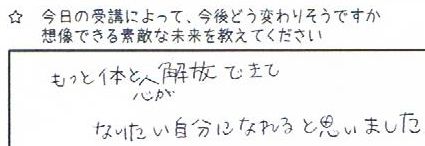 ☆ 今日の受講によって、今後どう変わりそうですか
想像できる素敵な未来を教えてください
もっと体と心が解放できて
なりたい自分になれると思いました